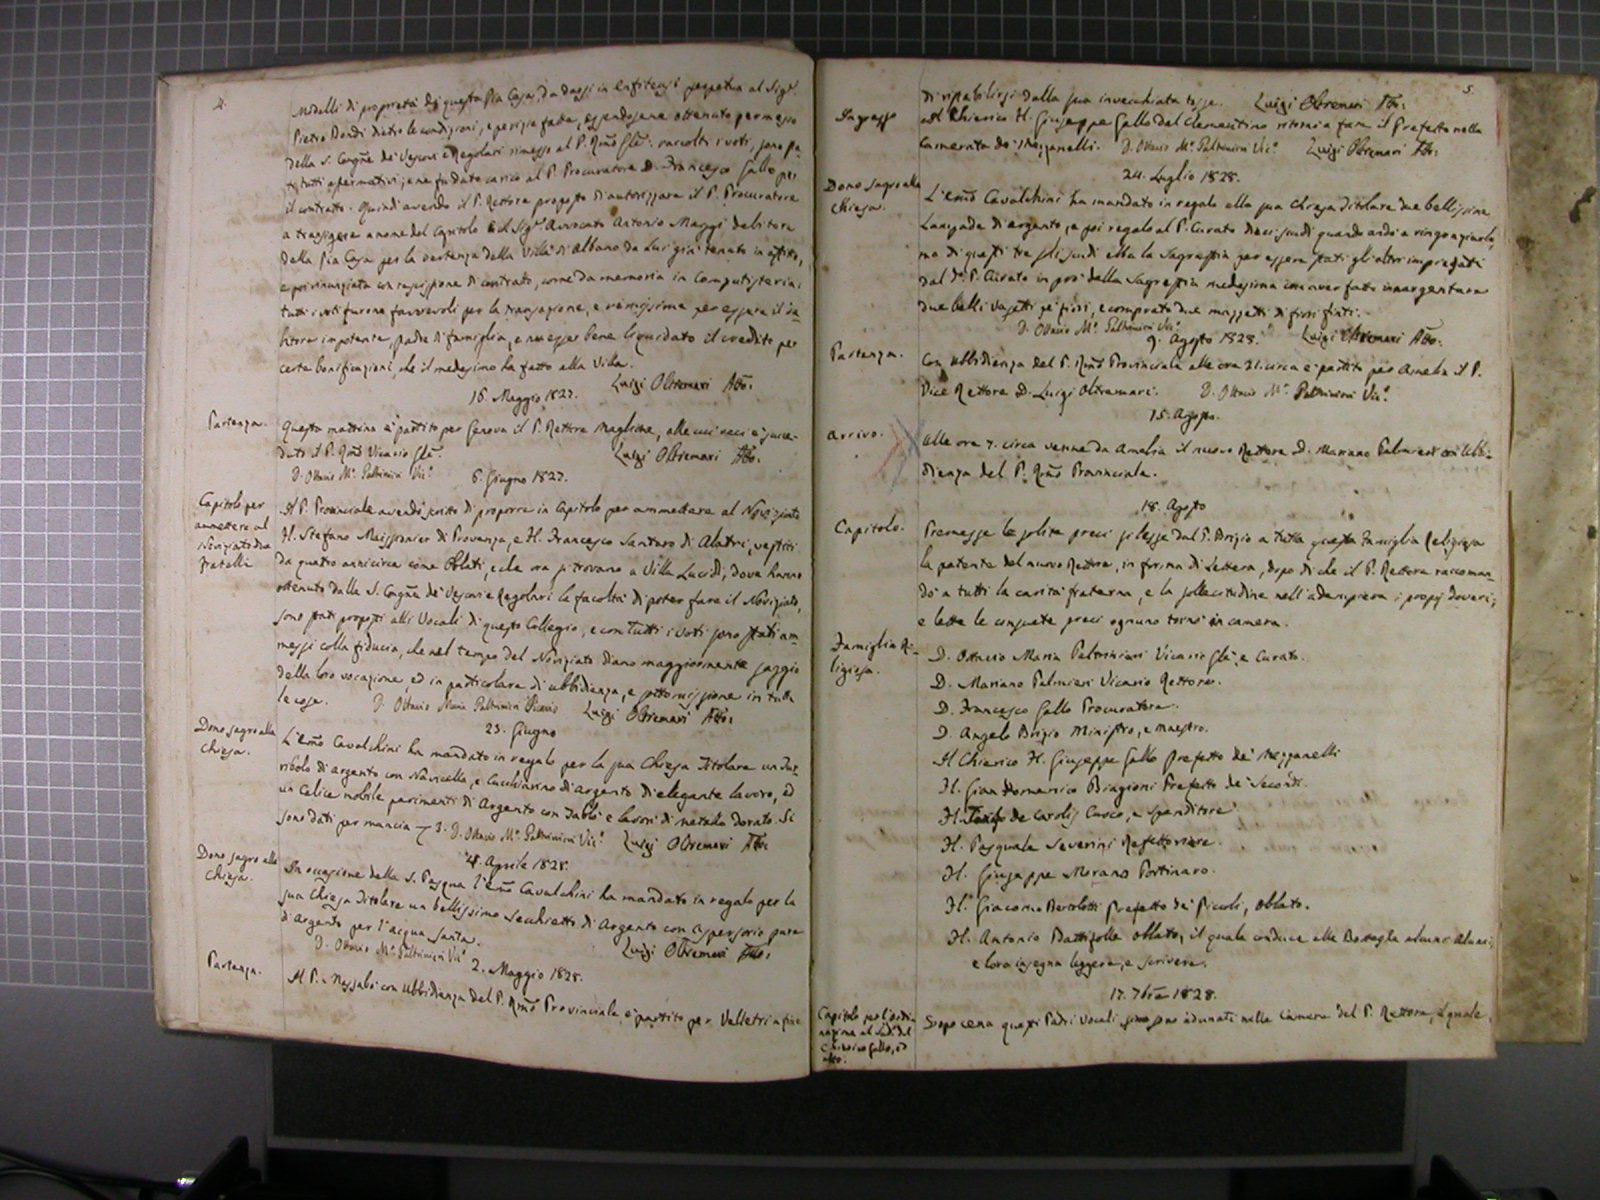 4.
Modelli di proprietà di questa Pia Casa, da darsi in enfiteusi perpetua al Sig.r
Pietro Bondi dietro le condizioni, e perizia fatta, essendosene ottenuto permesso
della S. Congne de' Vescovi e Regolari rimesso al P. Rmo Gle: raccolti i voti, sono sta-
ti tutti affermativi; e ne fu dato carico al P. Procuratore D. Francesco Gallo per
il contratto. Quindi avendo il P. Rettore proposto di autorizzare il P. Procuratore
a transigere a nome del Capitolo col Sig.r Avvocato Antonio Maggi debitore
della Pia Casa per la vertenza della Villa di Albano da Lui già tenuta in affitto,
e poi rinunziata con rescissione di contratto, come da memoria in Computisteria:
tutti i voti furono favorevoli per la transazione, e remissione per essere il de-
bitore impotente, padre di famiglia, e non esser bene liquidato il credito per
certe bonificazioni, che il medesimo ha fatto alla Villa.
Luigi Oltremari Atto:
16. Maggio 1827.
Partenza.
Questa mattina è partito per Genova il P. Rettore Maglione, alle cui veci è succe-
duto il P. Rmo Vicario Gle.
Luigi Oltremari Atto.
D. Ottavio Ma. Paltrinieri Vic.o
6. Giugno 1827.
Capitolo per
ammettere al
Noviziato due
fratelli
Il P. Provinciale avendo scritto di proporre in Capitolo per ammettere al Noviziato
H. Stefano Meissonier di Provenza, e H. Francesco Santoro di Alatri, vestiti
da quattro anni circa come Oblati, e che ora si trovano a Villa Lucidi, dove hanno
ottenuto dalla S. Congne de' Vescovi e Regolari la facoltà di poter fare il Noviziato,
sono stati proposti alli Vocali di questo Collegio, e con tutti i voti sono stati am-
messi colla fiducia, che nel tempo del Noviziato diano maggiormente saggio
della loro vocazione, ed in particolare di ubbidienza, e sottomissione in tutte
le cose.
D. Ottavio Maria Paltrinieri Vicario Luigi Oltremari Atto:
23. Giugno
Dono sagro alla
Chiesa.
L'Emo Cavalchini ha mandato in regalo per la sua Chiesa Titolare un Tur-
ribolo di argento con Navicella, e Cucchiarino di Argento di elegante lavoro, ed
un Calice nobile parimenti di Argento con e lavori di metallo dorato. Si
sono dati per mancia 3. D. Ottavio Ma. Paltrinieri Vic.o Luigi Oltremari Atto:
4. Aprile 1828.
Dono sagro alla
Chiesa.
In occasione della S. Pasqua l'Emo Cavalchini ha mandato in regalo per la
sua Chiesa Titolare un bellissimo Secchietto di Argento con aspersorio pure
di Argento per l'acqua santa.
Luigi Oltremari Atto:
D. Ottavio Ma. Paltrinieri Vic.o
2. Maggio 1828.
Partenza.
Il P. con ubbidienza del P. Rmo Provinciale è partito per Velletri a fine
5.
di ristabilirsi dalla sua invecchiata tosse. Luigi Oltremari Atto:
Ingresso
Il Chierico H. Giuseppe Gallo dal Clementino ritornò a fare il Prefetto nella
Camerata de' Mezzanelli. D. Ottavio Ma. Paltrinieri Vic.o Luigi Oltremari Atto:
24. Luglio 1828.
Dono sagro alla
Chiesa.
L'Emo Cavalchini ha mandato in regalo alla sua Chiesa Titolare due bellissime
Lampade di argento, e poi regalò al P. Curato dieci scudi quando andò a ringraziarlo,
ma di questi tre soli scudi ebbe la Sagrestia per essere stati gli altri impiegati
dal do. P. Curato in prò della Sagrestia medesima con aver fatto inargentare
due belli vasetti pe' fiori, e comprato due mazzetti di fiori finti.
D. Ottavio Ma. Paltrinieri Vic.o Luigi Oltremari Atto.
9. Agosto 1828.
Partenza.
Con ubbidienza del P. Rmo Provinciale alle ore 21. circa è partito per Amelia il P.
Vice Rettore D. Luigi Oltremari. D. Ottavio Ma. Paltrinieri Vic.o
15. Agosto.
Arrivo.
Alle ore 7. circa venne da Amelia il nuovo Rettore D. Mariano Palmieri con ubbi-
dienza del P. Rmo Provinciale.
18. Agosto
Capitolo.
Premesse le solite preci si lesse dal P. Brizio a tutta questa Famiglia Religiosa
la patente del nuovo Rettore, in forma di Lettera, dopo di che il P. Rettore raccoman-
dò a tutti la carità fraterna, e la sollecitudine nell'adempiere i proprj doveri;
e lette le consuete preci ognuno tornò in camera.
Famiglia Re-
ligiosa.
D. Ottavio Maria Paltrinieri Vicario Gle, e Curato.
D. Mariano Palmieri Vicario Rettore.
D. Francesco Gallo Procuratore.
D. Angelo Brizio Ministro, e Maestro.
Il Chierico H. Giuseppe Gallo Prefetto de' Mezzanelli
H. Gian Domenico Biagioni Prefetto de' Secondi.
H. de Carolis Cuoco, e Spenditore
H. Pasquale Severini Refettoriere.
H. Giuseppe Morano Portinaro.
H. Giacomo Bertolotti Prefetto de' Piccoli, Oblato.
H. Antonio Battifolle Oblato, il quale conduce alle Botteghe alcuni Alunni,
e loro insegna leggere, e scrivere.
17. 7bre 1828.
Capitolo per l'ordi-
nazione al Sud. del
Chierico Gallo, ed
altro.
Dopo cena questi Padri Vocali sono adunati nella Camera del P. Rettore, il quale